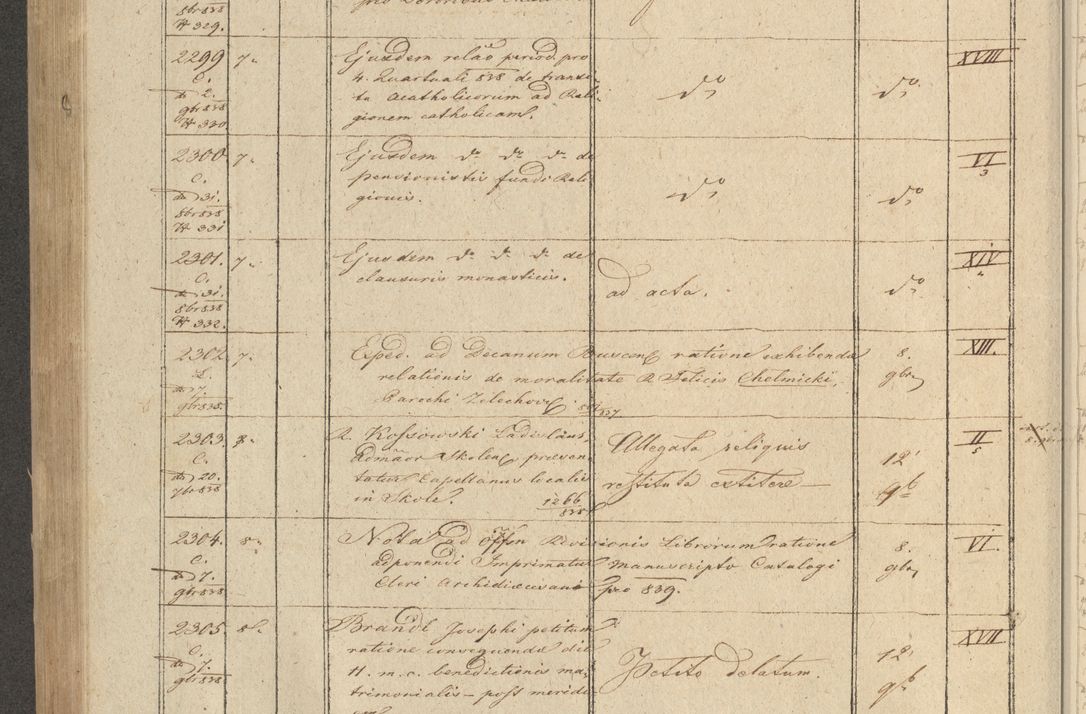 8br 838
# 329.
2299 7.
C.
dto 2.
9br 838
# 330.
Ejusdem relão period. pro
4. Quartali 838 de transi-
tu acatholicorum ad Reli-
gionem catholicam.
do
do
XVIII
2300 7.
C.
dto 31.
8br 838
# 331
Ejusdem do do do de
pensionistis fundi Reli
gionis.
do
do
VI
3
2301. 7.
C.
dto 31.
8br 838
# 332.
Ejusdem do do do de
clausuris monasticis.
ad acta.
do
XIV
2302 7.
L.
dto 7.
9br 838.
Exped. ad Decanum Buscen ratione exhibendae
relationis de moralitate R. Felicis Cholmicki,
Parochi Zelechov
8.
9br
XIII.
2303. 8.
C.
dto 20.
7br 838
R. Kossowski Ladislaus,
Admãor Skolen praesen
tatur Capellanus localis
in Skole.
1266
838
Allegata reliquis
restituta extitere —
12
9b
II
5
2304. 8.
C.
dto 7.
9br 838
Nota ad offm Revisionis Librorum ratione
adponendi Imprimatur manuscripto Catalogi
Cleri Archidioecesani pro 839.
8.
9br
VI.
2305 8.
C.
dto 7.
9br 838
Brandl Josephi petitum
ratione consequendae die
H. m. c. benedictionis ma-
trimonialis — post meridi
Petito delatum.
12
9b
XVII